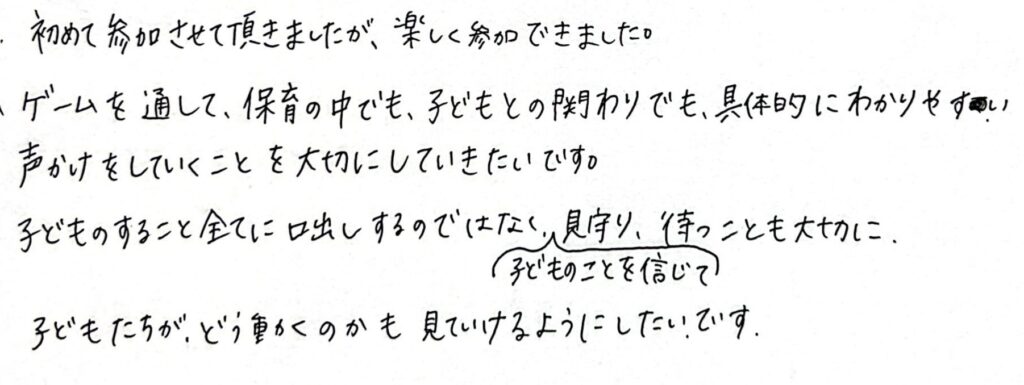 初めて参加させて頂きましたが、楽しく参加できました。
ゲームを通して、保育の中でも、子どもとの関わりでも、具体的にわかりやすい
声かけをしていくことを大切にしていきたいです。
子どものすること全てに口出しするのではなく、見守り、待つことも大切に、
子どものことを信じて
子どもたちが、どう動くのかも見ていけるようにしたいです。